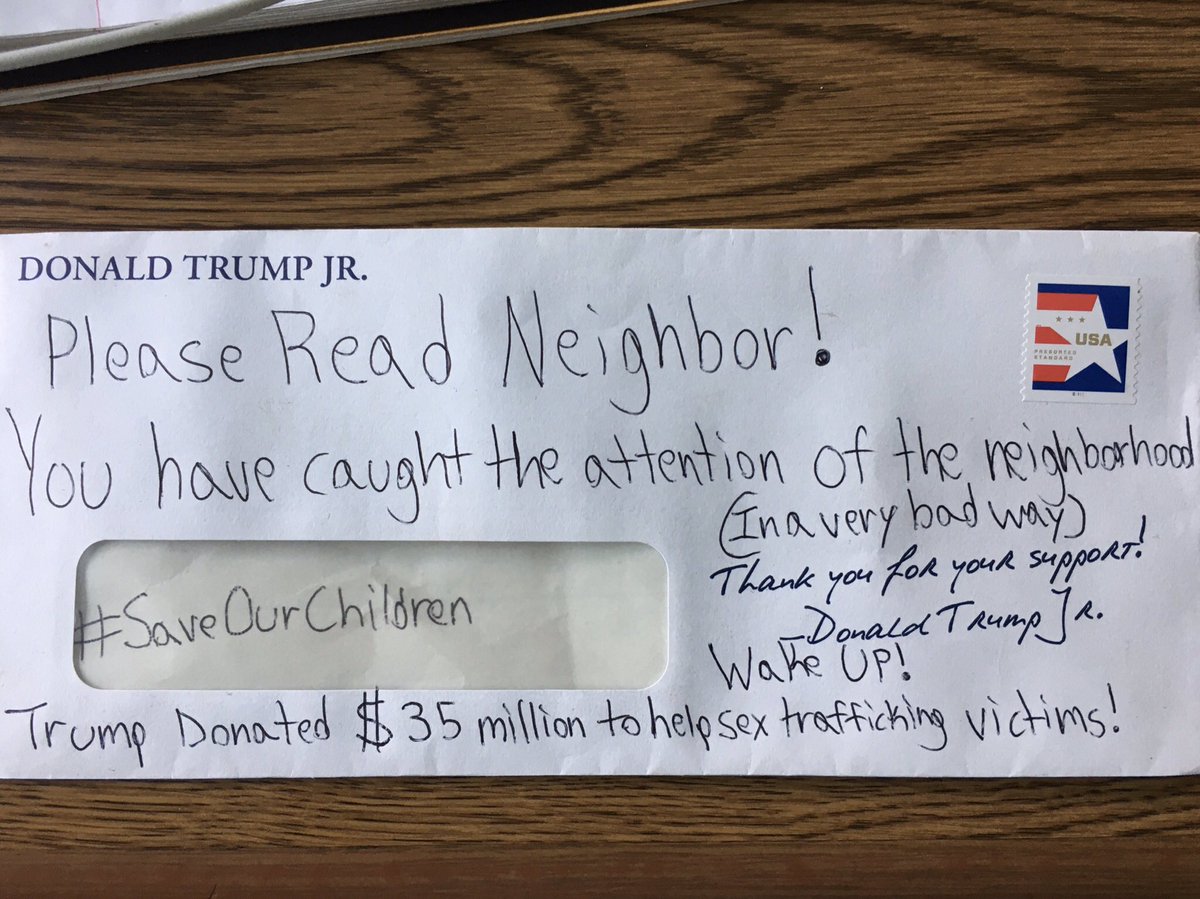 DONALD TRUMP JR.
Please Read Neighbor!
★ ★ ★
USA
PRESORTED
STANDARD
You have caught the attention of the neighborhood
(In a very bad way)
Thank you for your support!
—Donald Trump Jr.
#SaveOurChildren
Wake UP!
Trump Donated $35 million to help sex trafficking victims!